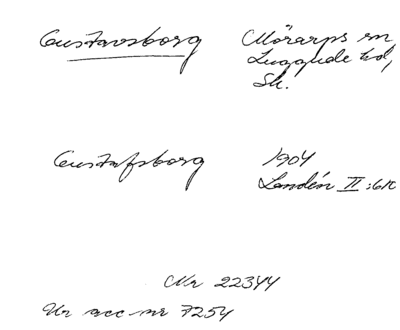 Gustavsborg Mörarps sn,
Luggude hd,
Sk.
Gustafsborg 1904
Landén II:610
Nr 22344
Ur acc nr 7254